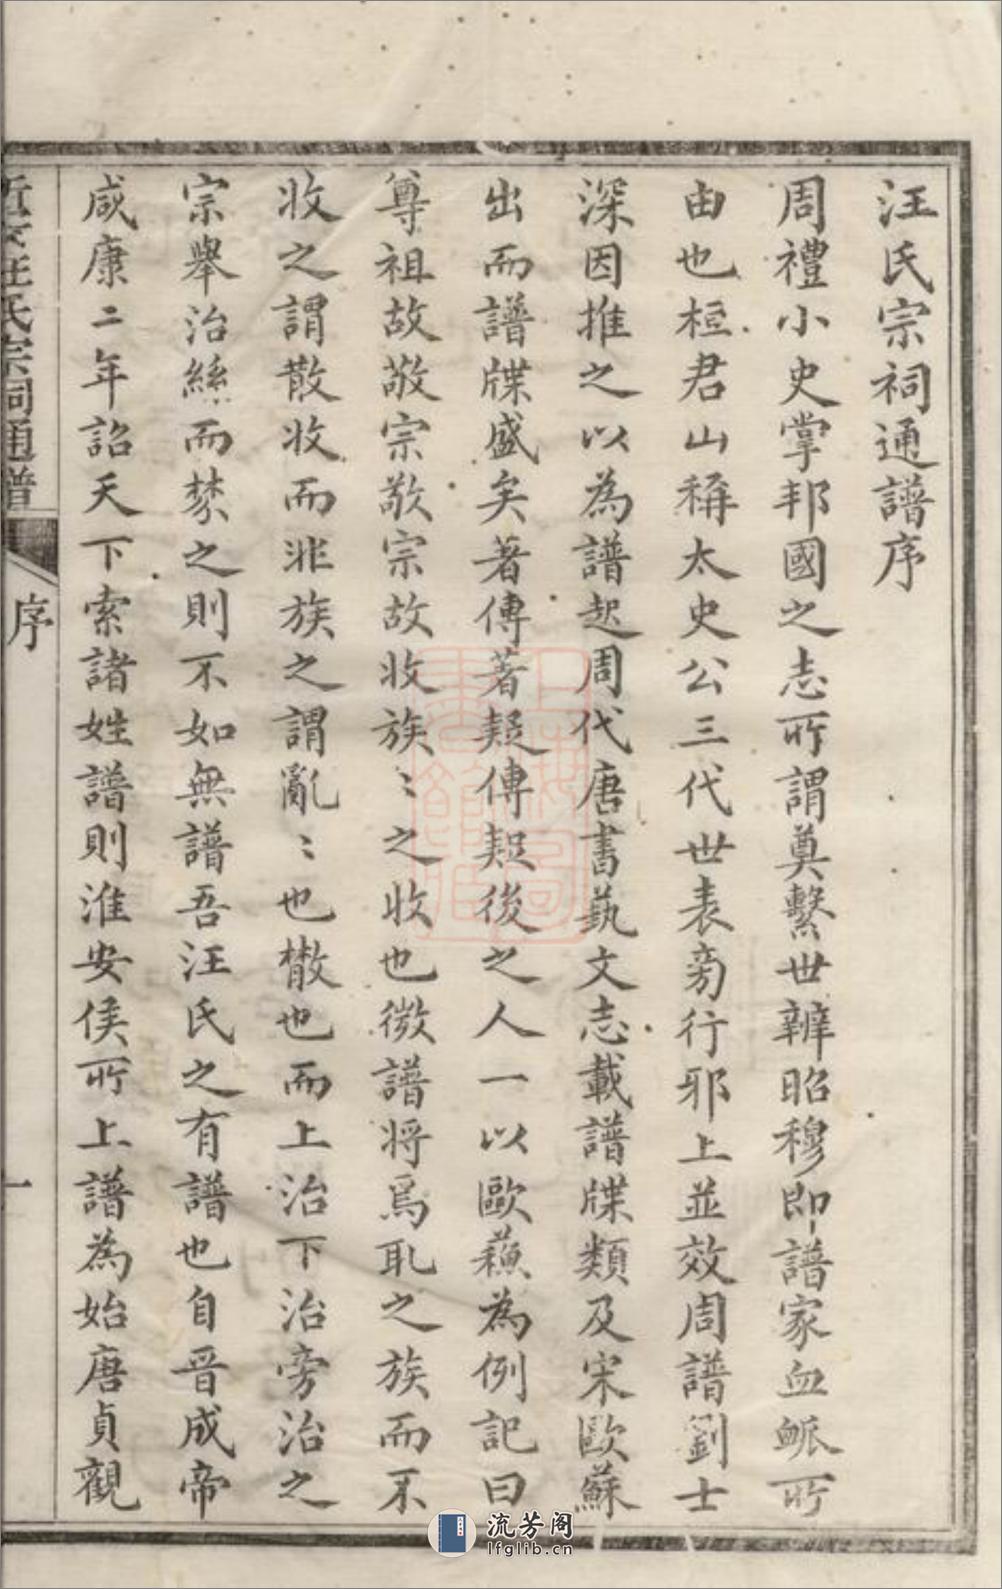 汪氏宗祠通譜序
周禮小史掌邦國之志所謂奠繫世辨昭穆即譜家血脈所
由也桓君山稱太史公三代世表旁行邪上並效周譜劉士
深因推之以為譜起周代唐書藝文志載譜牒類及宋歐蘇
出而譜牒盛矣著傳著疑傳疑後之人一以歐蘓為例記曰
尊祖故敬宗敬宗故收族〻之收也微譜將焉取之族而不
收之謂散收而非族之謂亂〻也散也而上治下治旁治之
宗舉治絲而棼之則不如無譜吾汪氏之有譜也自晉成帝
咸康二年詔天下索諸姓譜則淮安侯所上譜為始唐貞觀
汪氏宗祠通譜
序
一
流芳阁
lfglib.cn